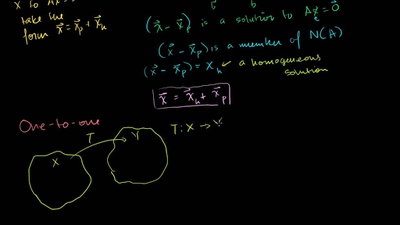 x to Ax
take the
form x⃗ = x⃗p + x⃗h
(x⃗ - x⃗p) is a solution to Ax⃗ = 0⃗
(x⃗ - x⃗p) is a member of N(A)
(x⃗ - x⃗p) = x⃗h ✓ a homogeneous
solution
x⃗ = x⃗h + x⃗p
One-to-one
T
X
Y
T: X → Y